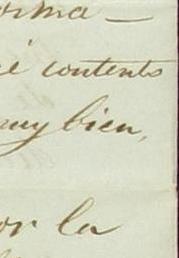 orma —
é contents
muy bien,
or la